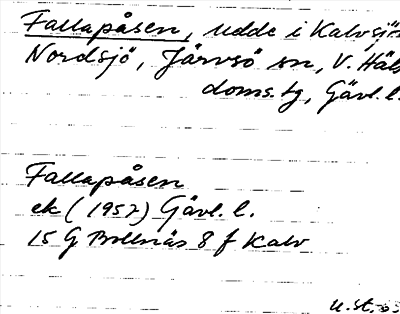 Fallapåsen, udde i Kalvsjön
Nordsjö, Järvsö sn, V. Häls
doms.tg, Gävl. l.
Fallapåsen
ek (1957) Gävl. l.
15 G Bollnäs 8 f Kalv
u.st.